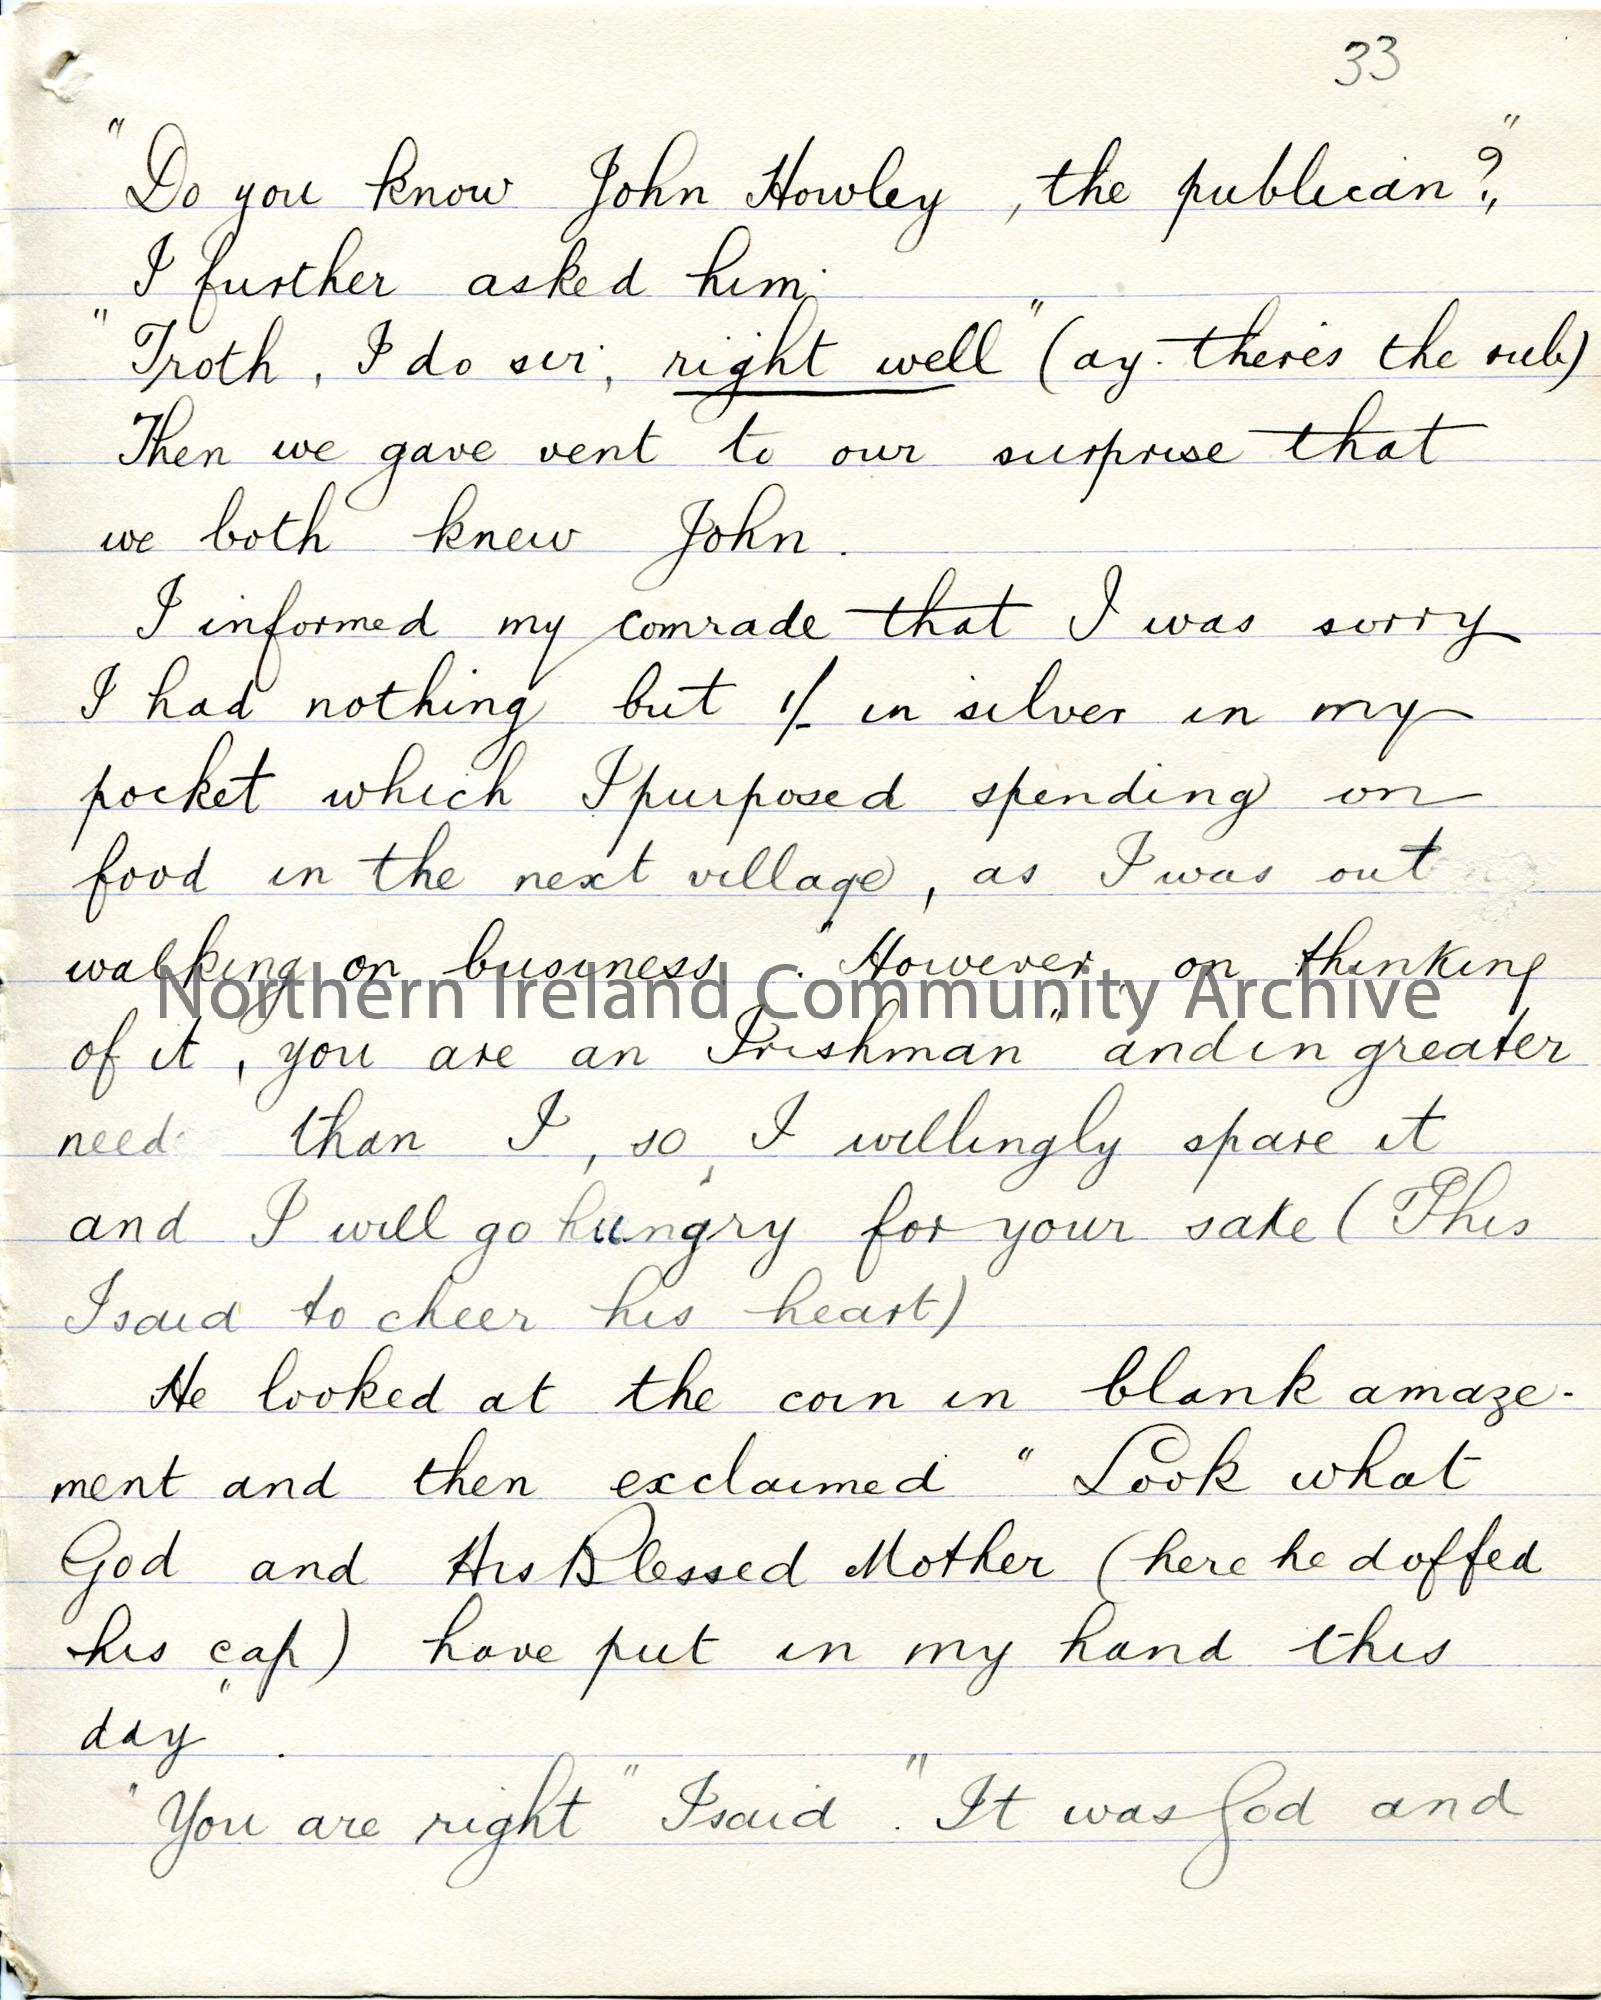 33
"Do you know John Howley, the publican?"
I further asked him.
"Troth, I do sir, right well" (ay. there's the rub)
Then we gave vent to our surprise that
we both knew John.
I informed my comrade that I was sorry
I had nothing but 1/- in silver in my
pocket which I purposed spending on
food in the next village, as I was out
walking on business. "However, on thinking
Northern Ireland Community Archive
of it, you are an Irishman" and in greater
need than I, so, I willingly spare it
and I will go hungry for your sake (This
I said to cheer his heart)
He looked at the coin in blank amaze-
ment and then exclaimed "Look what
God and His Blessed Mother (here he doffed
his cap) have put in my hand this
day".
"You are right" I said. "It was God and